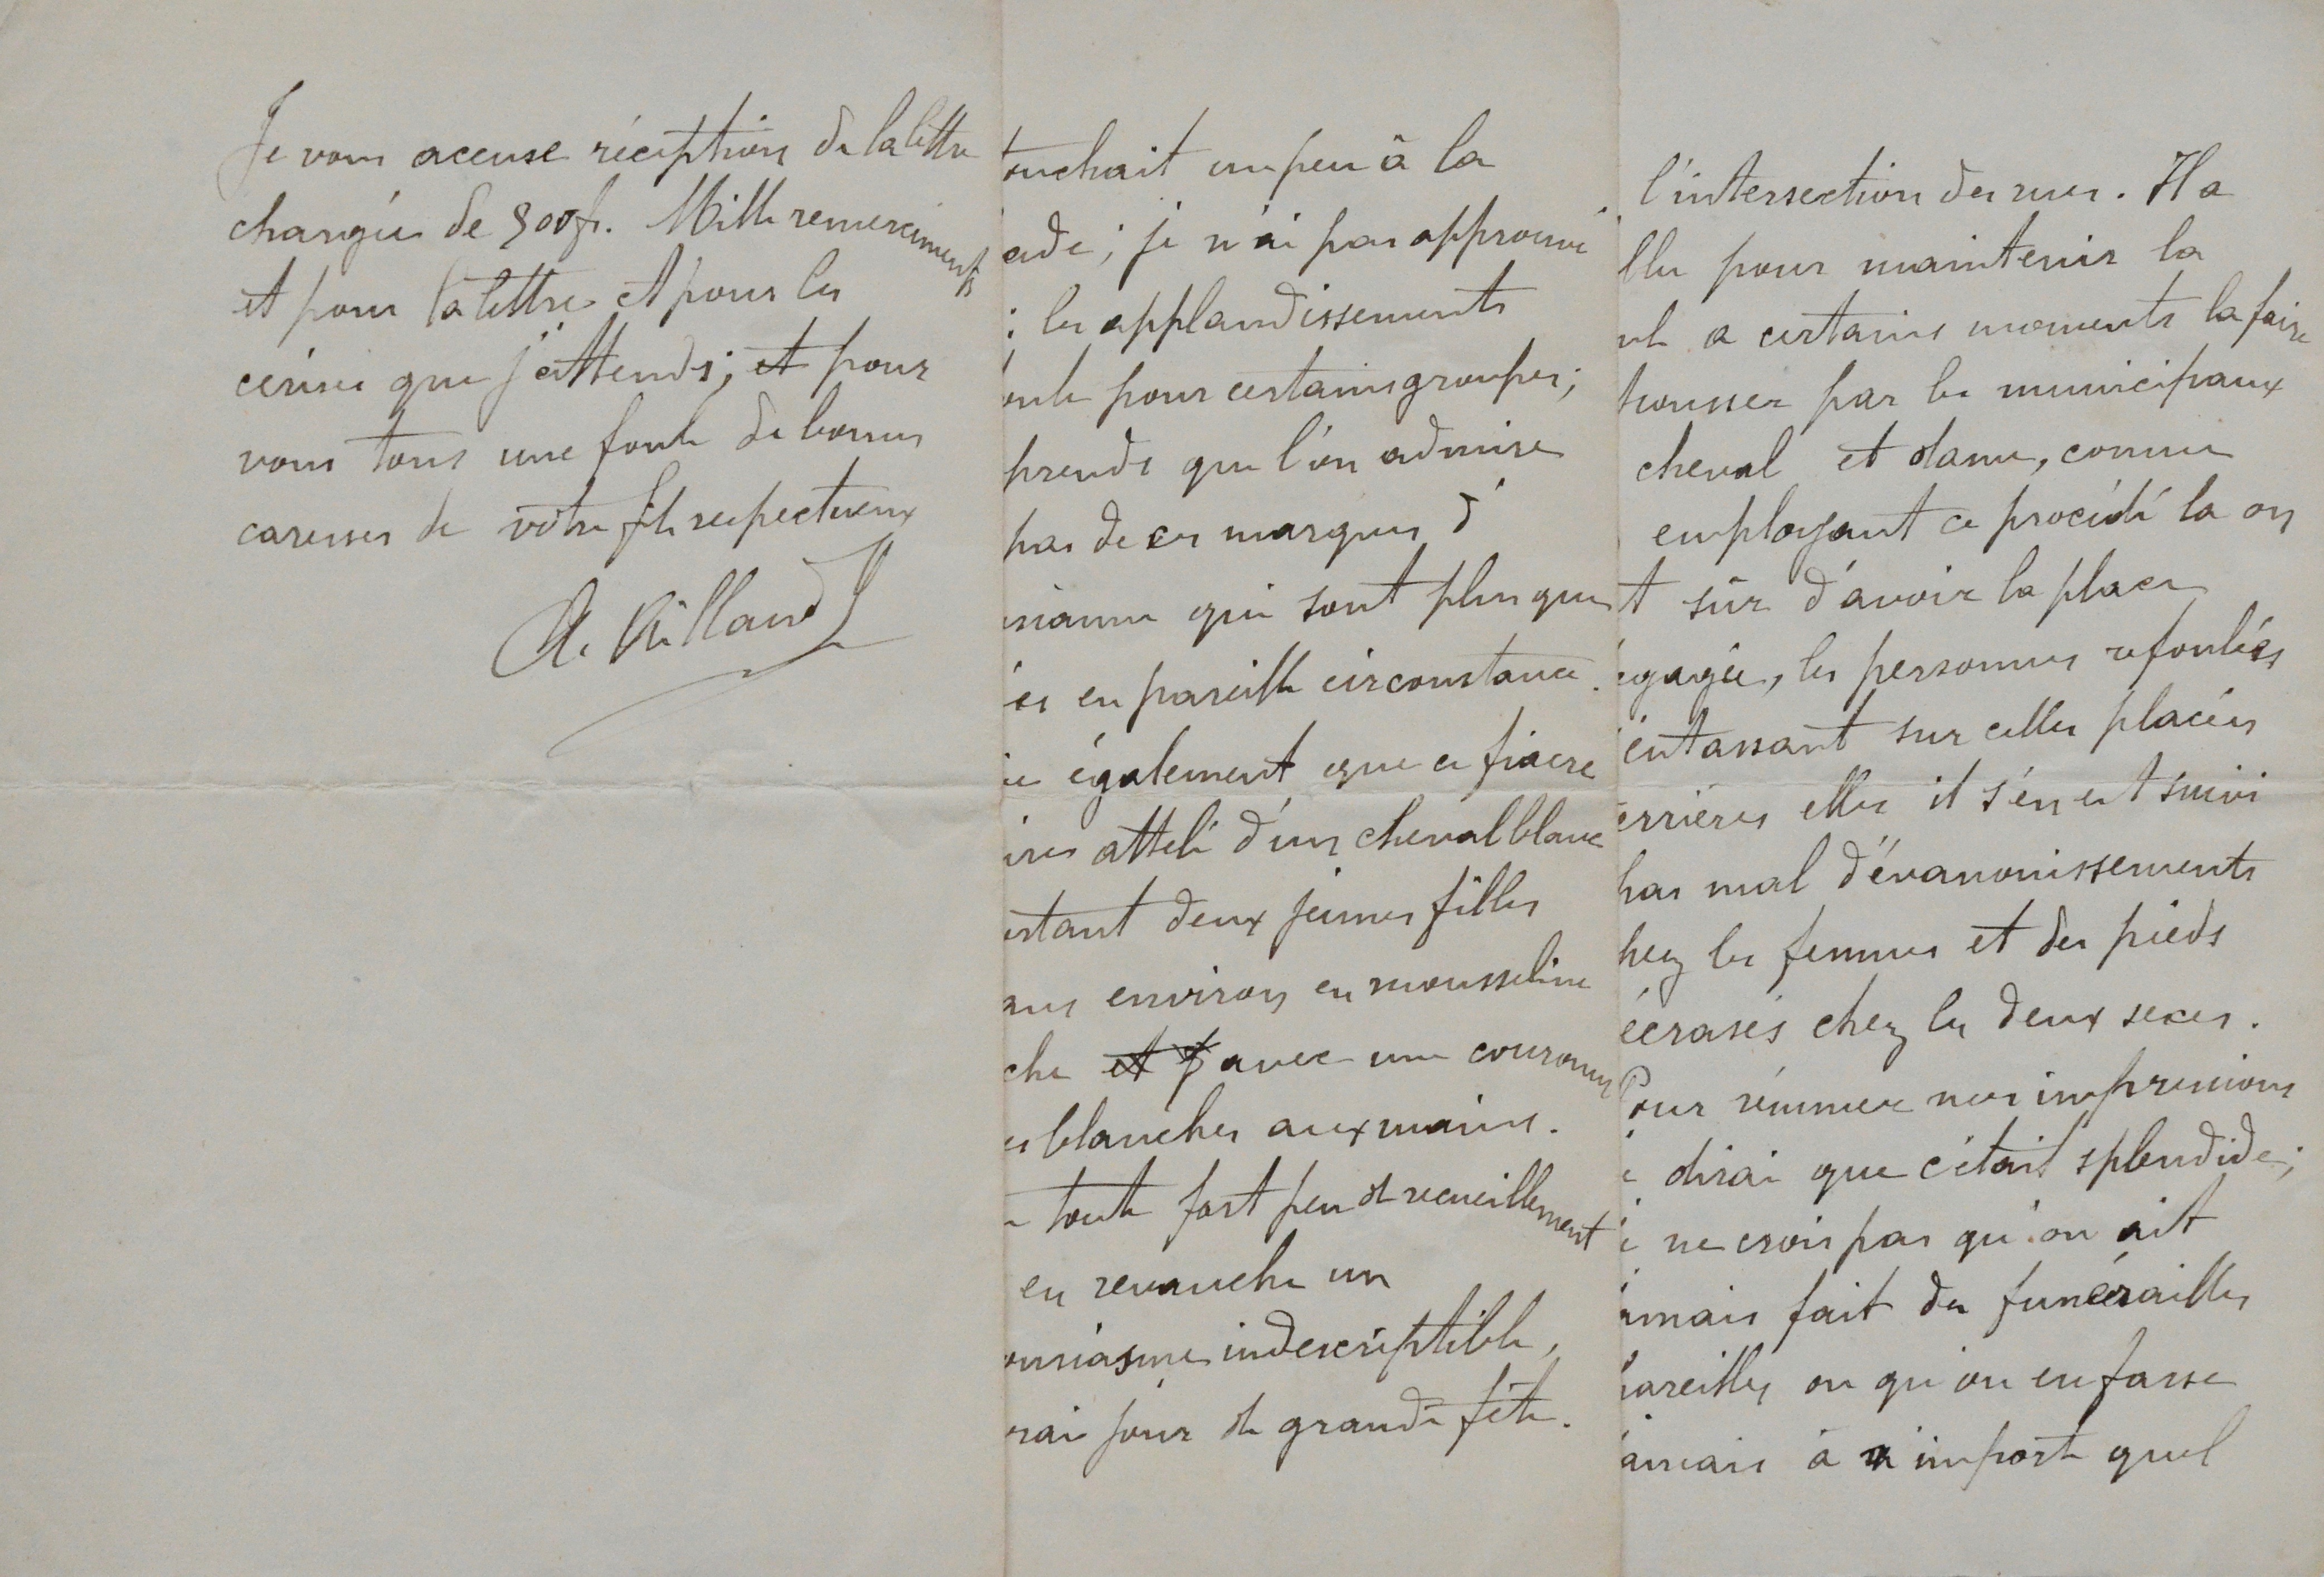 Je vous accuse réception de la lettre
chargée de 300f. Mille remerciments
et pour la lettre et pour les
cerises que j'attends; et pour
vous tous une foule de bonnes
caresses de votre fils respectueux
A. Rillaud
ouchait un peu à la
ade; je n'ai pas approuvé
; les applaudissements
oule pour certains groupes;
prends que l'on admire
pas de ces marques d'
siasme qui sont plus que
es en pareille circonstance.
ie également que ce fiacre
ires attelé d'un cheval blanc
rtant deux jeunes filles
ans environ en mousseline
che et f avec une couronne
s blanches aux mains.
e toute fort peu de recueillement
en revanche un
ousiasme indescriptible,
rai jour de grande fête.
l'intersection des rues. Il a
llu pour maintenir la
ule a certains moments la faire
pousser par les municipaux
cheval et dame, comme
employant ce procédé la on
t sûr d'avoir la place
égagée, les personnes refoulées
s'entassant sur celles placées
errières elles il s'en est suivi
pas mal d'évanouissements
hez les femmes et des pieds
écrasés chez les deux sexes.
Pour résumer mes impressions
e dirai que c'était splendide;
e ne crois pas qu'on ait
amais fait des funérailles
pareilles ou qu'on en fasse
amais à n'importe quel